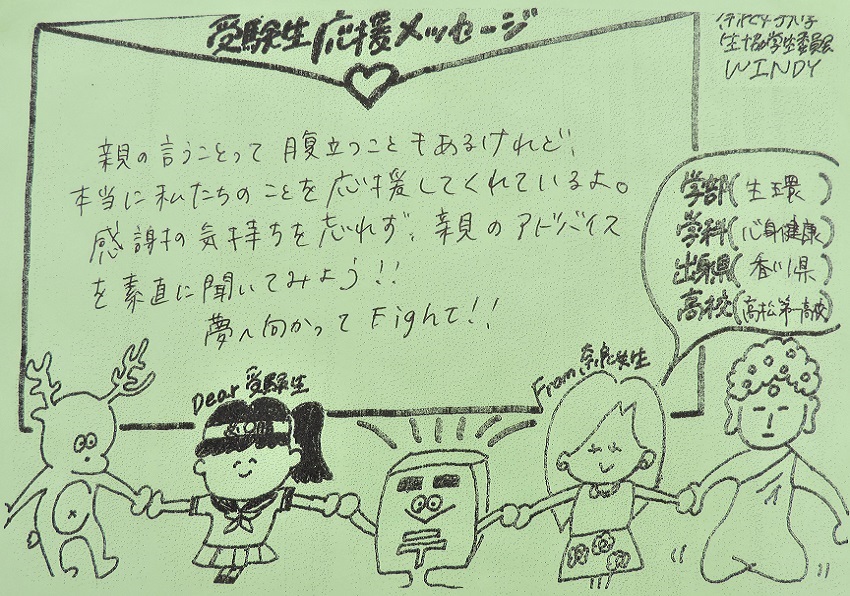 受験生応援メッセージ
生協学生委員会
WINDY
親の言うことって腹立つこともあるけれど、
本当に私たちのことを応援してくれているよ。
感謝の気持ちを忘れず、親のアドバイス
を素直に聞いてみよう!!
夢へ向かって Fight!!
学部(生環)
学科(心身健康)
出身県(香川県)
高校(高松第一高校)
Dear 受験生
From 奈良女生
〒